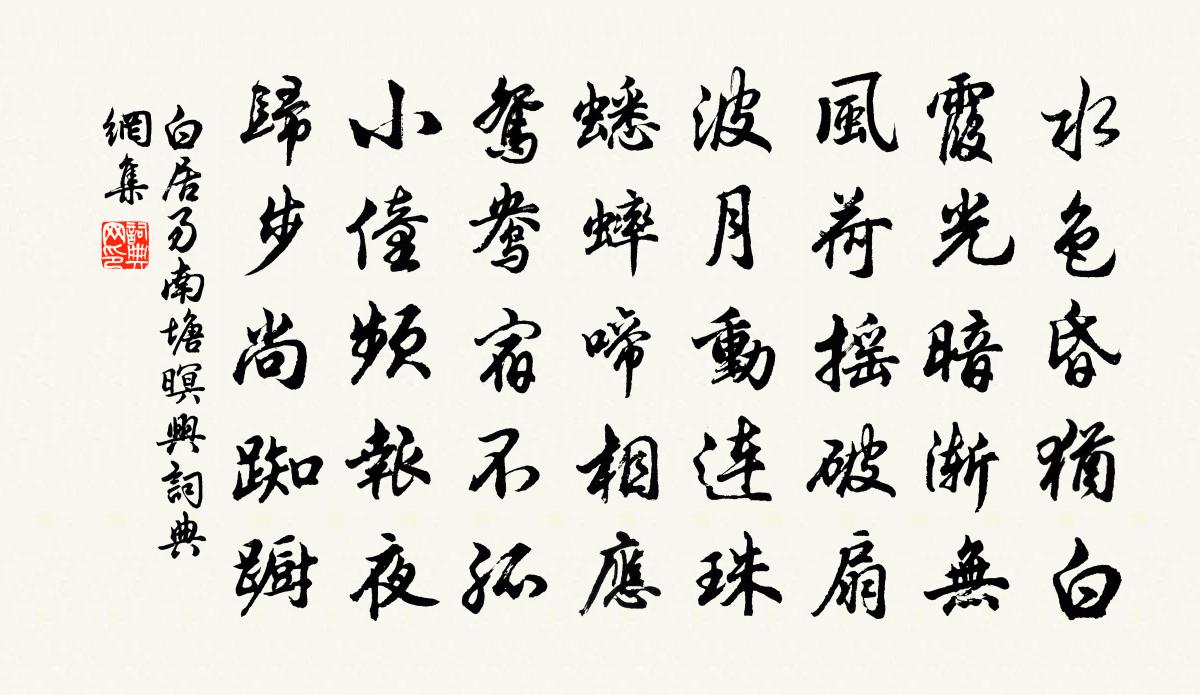 水色昏猶白
霞光暗漸無
風荷搖破扇
波月動連珠
蟋蟀啼相應
鴛鴦宿不孤
小僮頻報夜
歸步尚踟躕
白居易南塘暝興詞典
網集
詞典网印